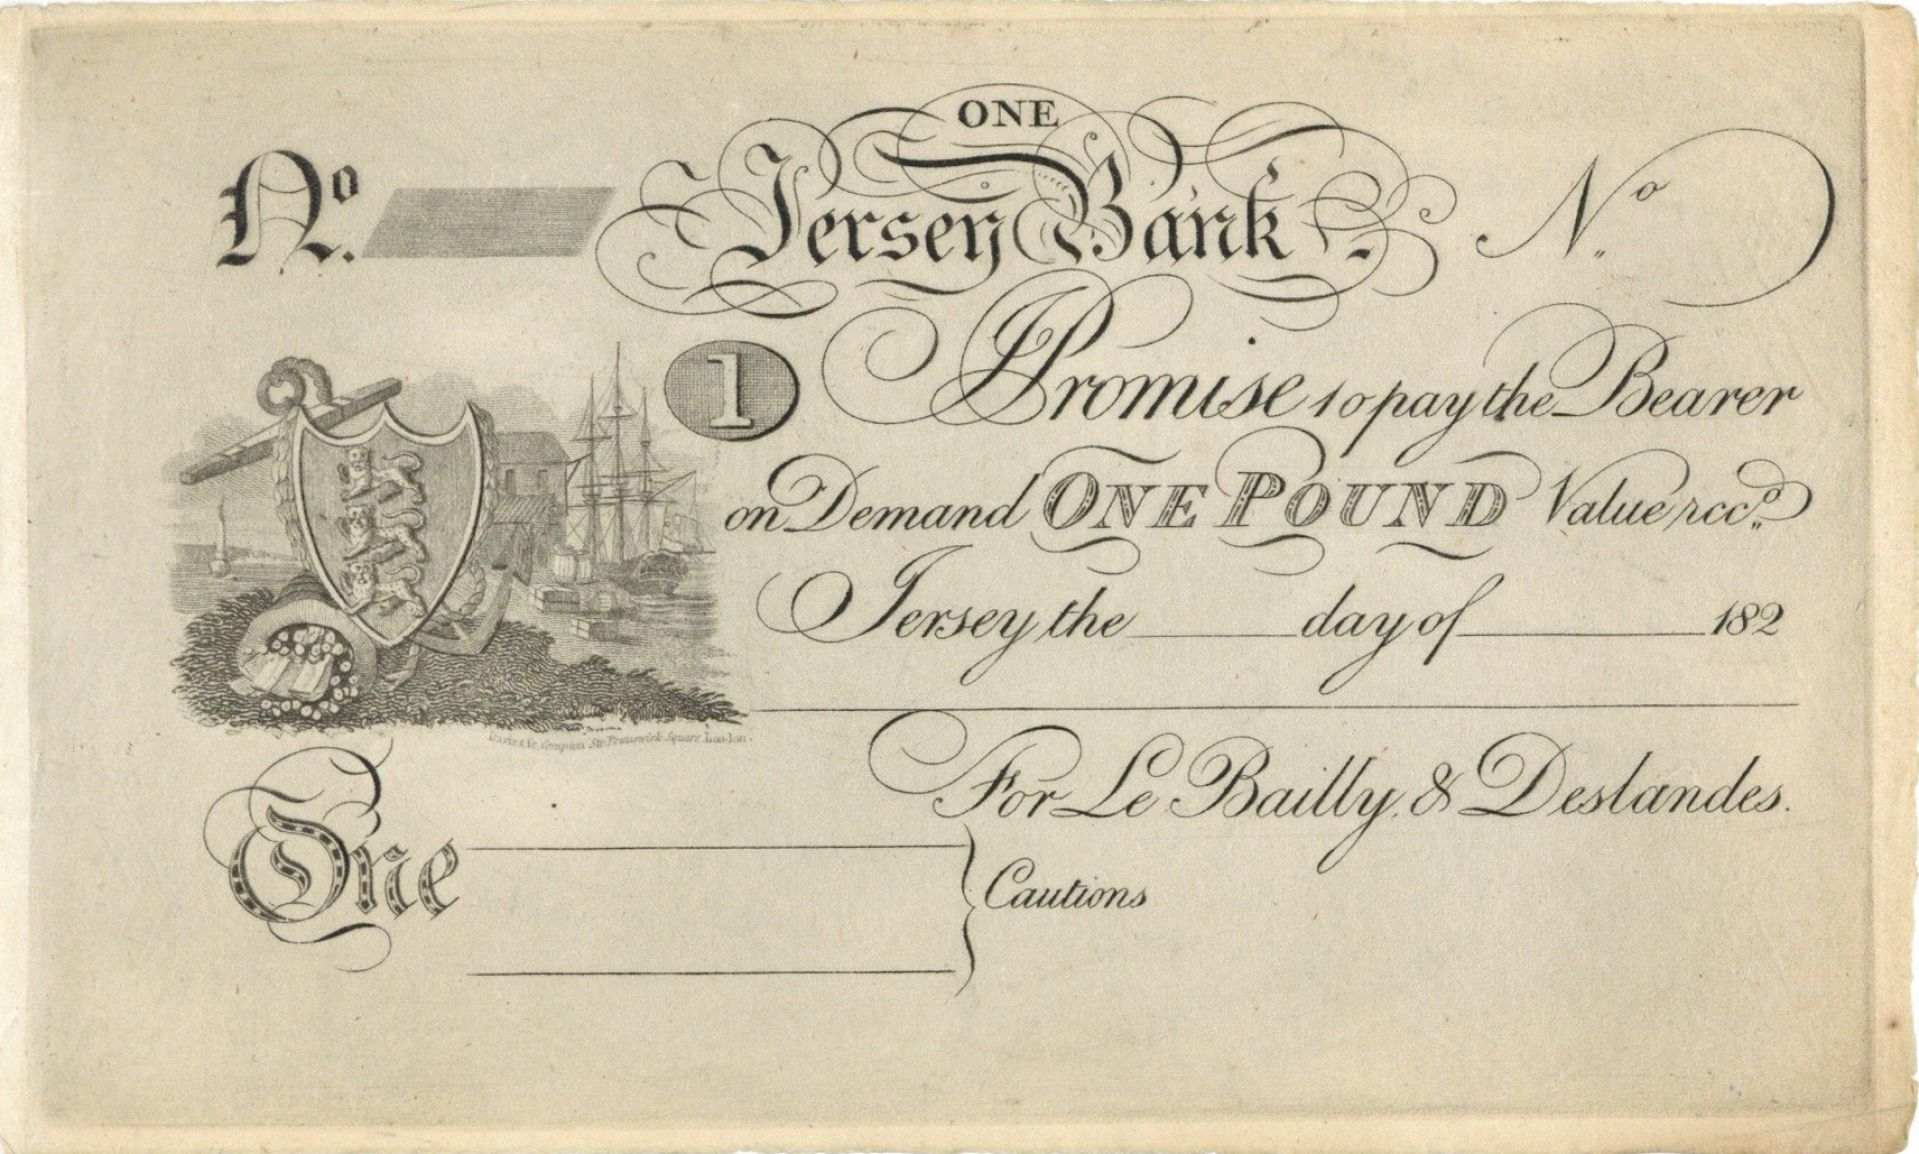 ONE
No. Jersey Bank No.
1 I Promise to pay the Bearer
on Demand ONE POUND Value recd.
Jersey the day of 182
Compton Str. Brunswick Square London.
For Le Bailly, & Deslandes.
One
Cautions